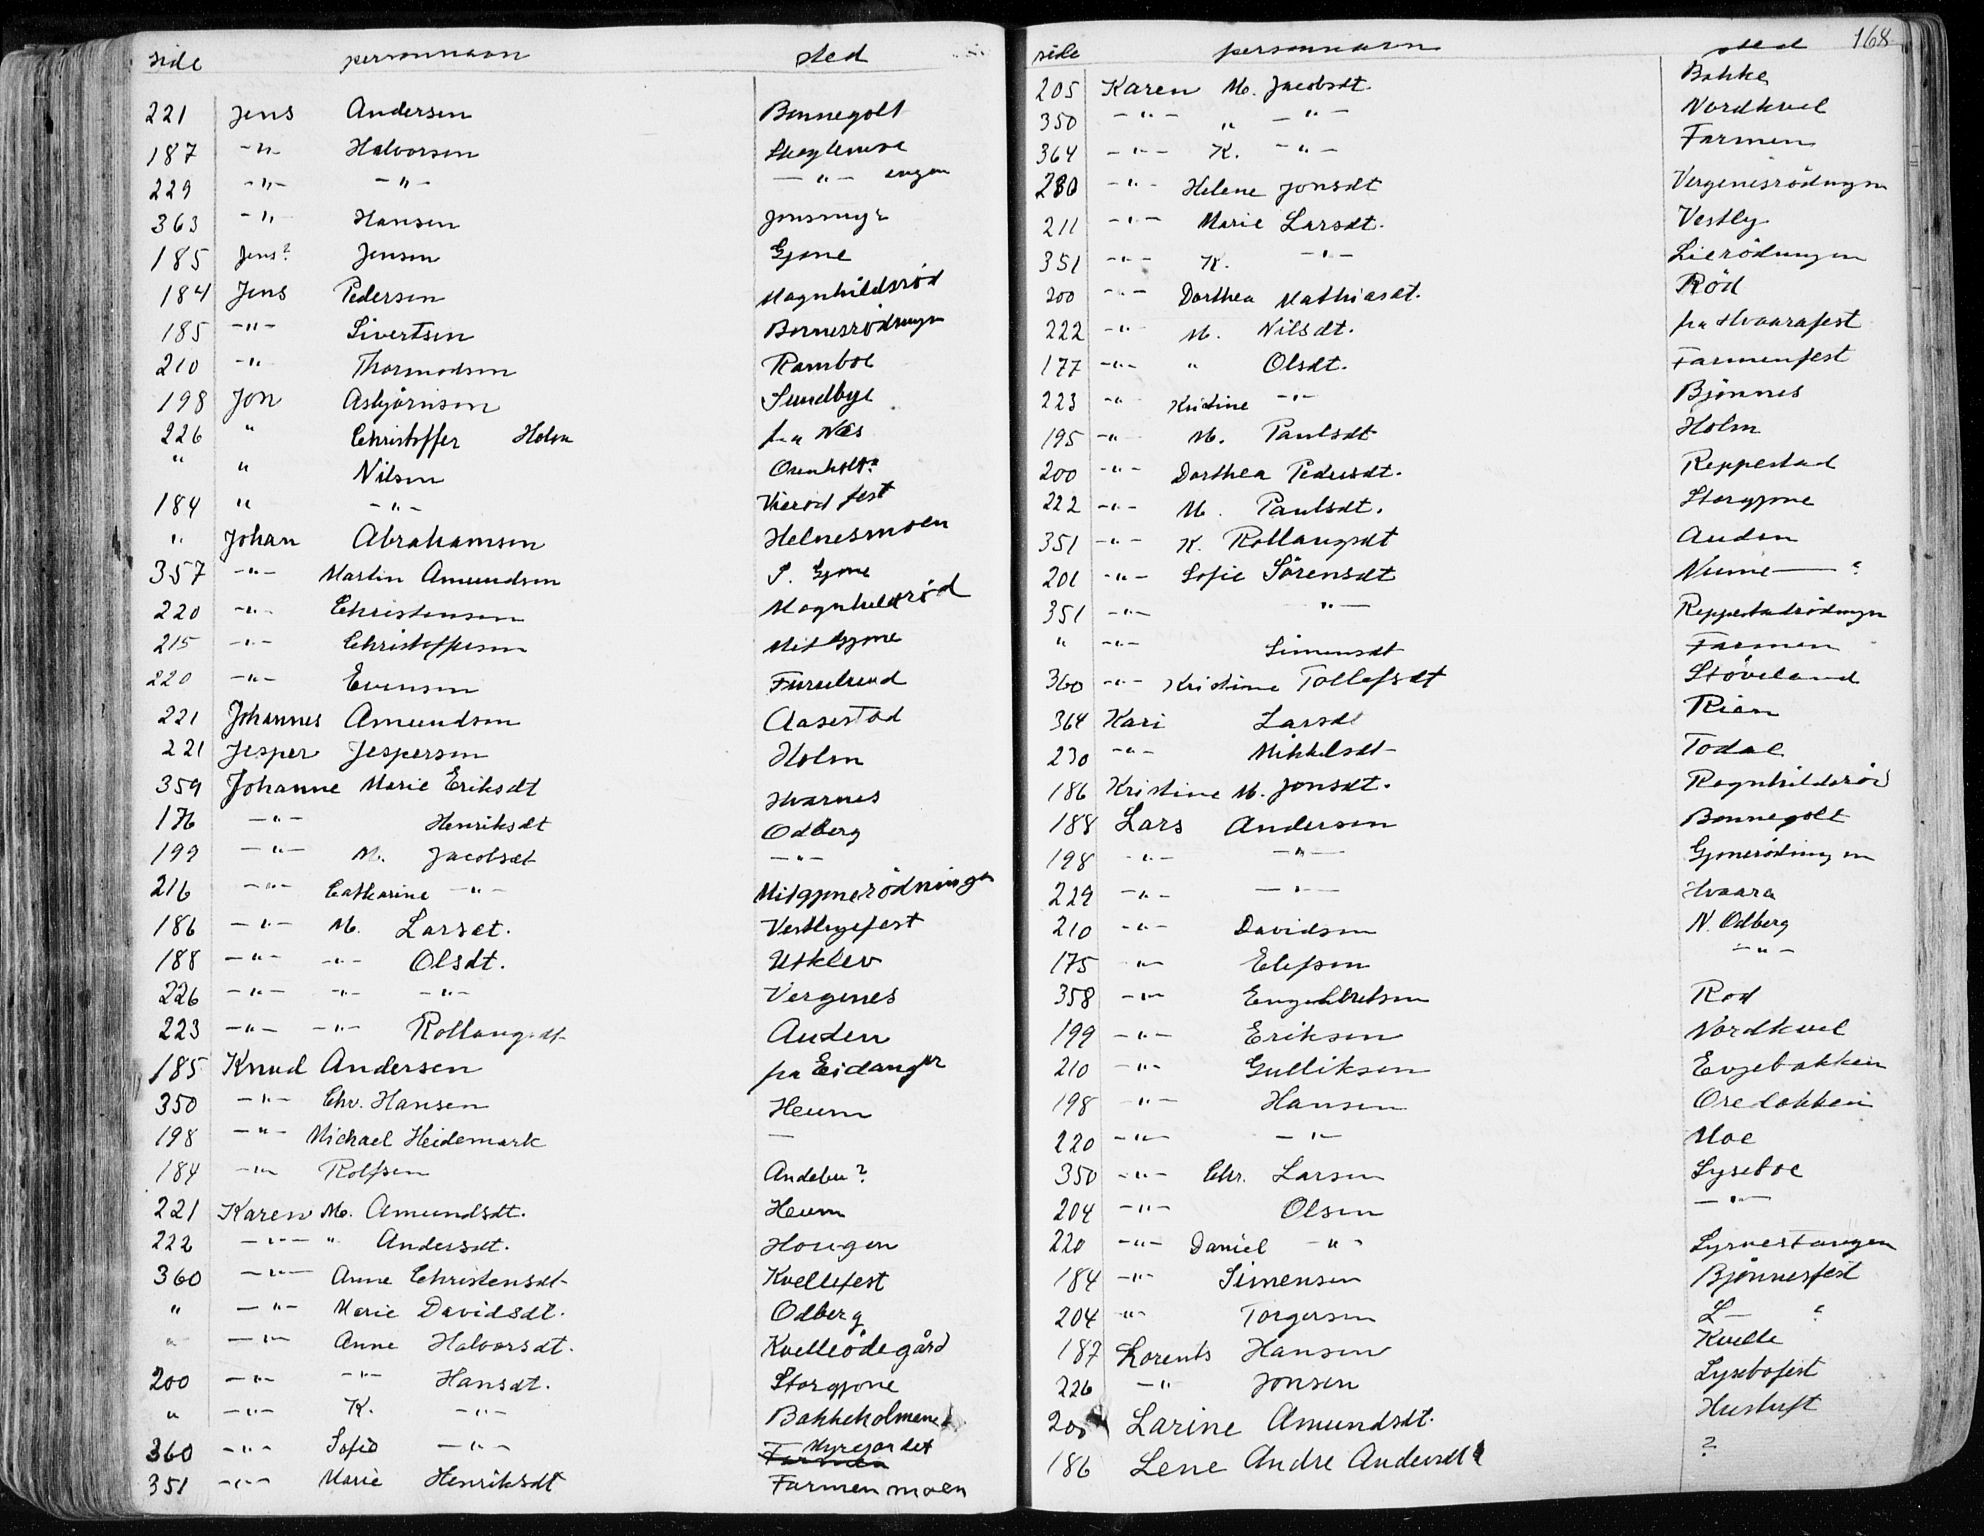 side personnavn sted
221 Jens Andersen Bonnegolt
187 -"- Halvorsen
229 -"- -"- -"- engen
363 -"- Hansen Jonsmyr
185 Jens? Jensen Gjone
184 Jens Pedersen Magnhildsröd
185 -"- Sivertsen Bonnesrödningen
210 -"- Thormodsen Ramboe
198 Jon Asbjörnsen Sundbye
226 " Christoffer Holm fra Næs
" " Nilsen Ouenholt?
184 " -"- Vierod fest
" Johan Abrahamsen Helnesmoen
357 -"- Martin Amundsen S. Gjone
220 -"- Christensen Magnhildsröd
215 -"- Christoffersen Mitgjone
220 -"- Evensen Furulund
221 Johannes Amundsen Aasestad
221 Jesper Jespersen Holm
359 Johanne Marie Eriksdt Hvarnes
176 -"- Henriksdt Odberg
199 -"- M. Jacobsdt -"-
216 -"- Catharine -"- Mitgjonerödningen
186 -"- M. Larsdt. Vestbyefest
188 -"- -"- Olsdt. Utklev
226 -"- -"- -"- Vergenes
223 -"- -"- Rollaugsdt Auden
185 Knud Andersen fra Eidanger
350 -"- Chr. Hansen Heum
198 -"- Michael Heidemark —
184 -"- Rolfsen Andebu?
221 Karen M. Amundsdt. Heum
222 -"- " Andersdt. Hougen
360 -"- Anne Christensdt Kvellefest
" -"- Marie Davidsdt. Odberg
" -"- Anne Halvorsdt. Kvelleödegård
200 -"- -"- Hansdt. Storgjone
" -"- K. -"- Bakkeholmene
360 -"- Sofie -"- Farmen Myrejordet
351 -"- Marie Henriksdt Farmenmoen
168
side personnavn sted
205 Karen M. Jacobsdt. Bakke
350 -"- " -"- Nordkvel
364 -"- K. -"- Farmen
280 -"- Helene Jonsdt Vergenesrödningen
211 -"- Marie Larsdt. Vestby
351 -"- K. -"- Lierödningen
200 -"- Dorthea Mathiasdt. Röd
222 -"- M. Nilsdt. fra Hvaarafest
177 -"- " Olsdt. Farmenfest
223 -"- Kristine -"- Bjönnes
195 -"- M. Paulsdt Holm
200 -"- Dorthea Pedersdt. Reppestad
222 -"- M. Paulsdt. Storgjone
351 -"- K. Rollaugsdt Auden
201 -"- Sofie Sörensdt Nume— ?
351 -"- -"- Reppestadrödningen
" -"- Simensdt Farmen
360 -"- Kristine Tollefsdt Stöveland
364 Kari Larsdt Rian
230 -"- Mikkelsdt Todal
186 Kristine M. Jonsdt. Ragnhildsröd
188 Lars Andersen Bonnegolt
198 -"- -"- Gjonerödningen
229 -"- -"- Hvaara
210 -"- Davidsen N. Odberg
175 -"- Elefsen -"-
358 -"- Engebretsen Rod
199 -"- Eriksen Nordkvel
210 -"- Gulliksen Engebakken
198 -"- Hansen Orelakken
220 -"- -"- Moe
350 -"- Chr. Larsen Lyseboe
204 -"- Olsen -"-
220 -"- Daniel -"- Lyrnestangen
184 -"- Simensen Bjönnesfest
204 -"- Torgersen L— ?
187 Lorents Hansen Kvelle
226 -"- Jonsen Lysebofest
Larine Amundsdt. Husluft
186 Lene Andre Andersdt ?